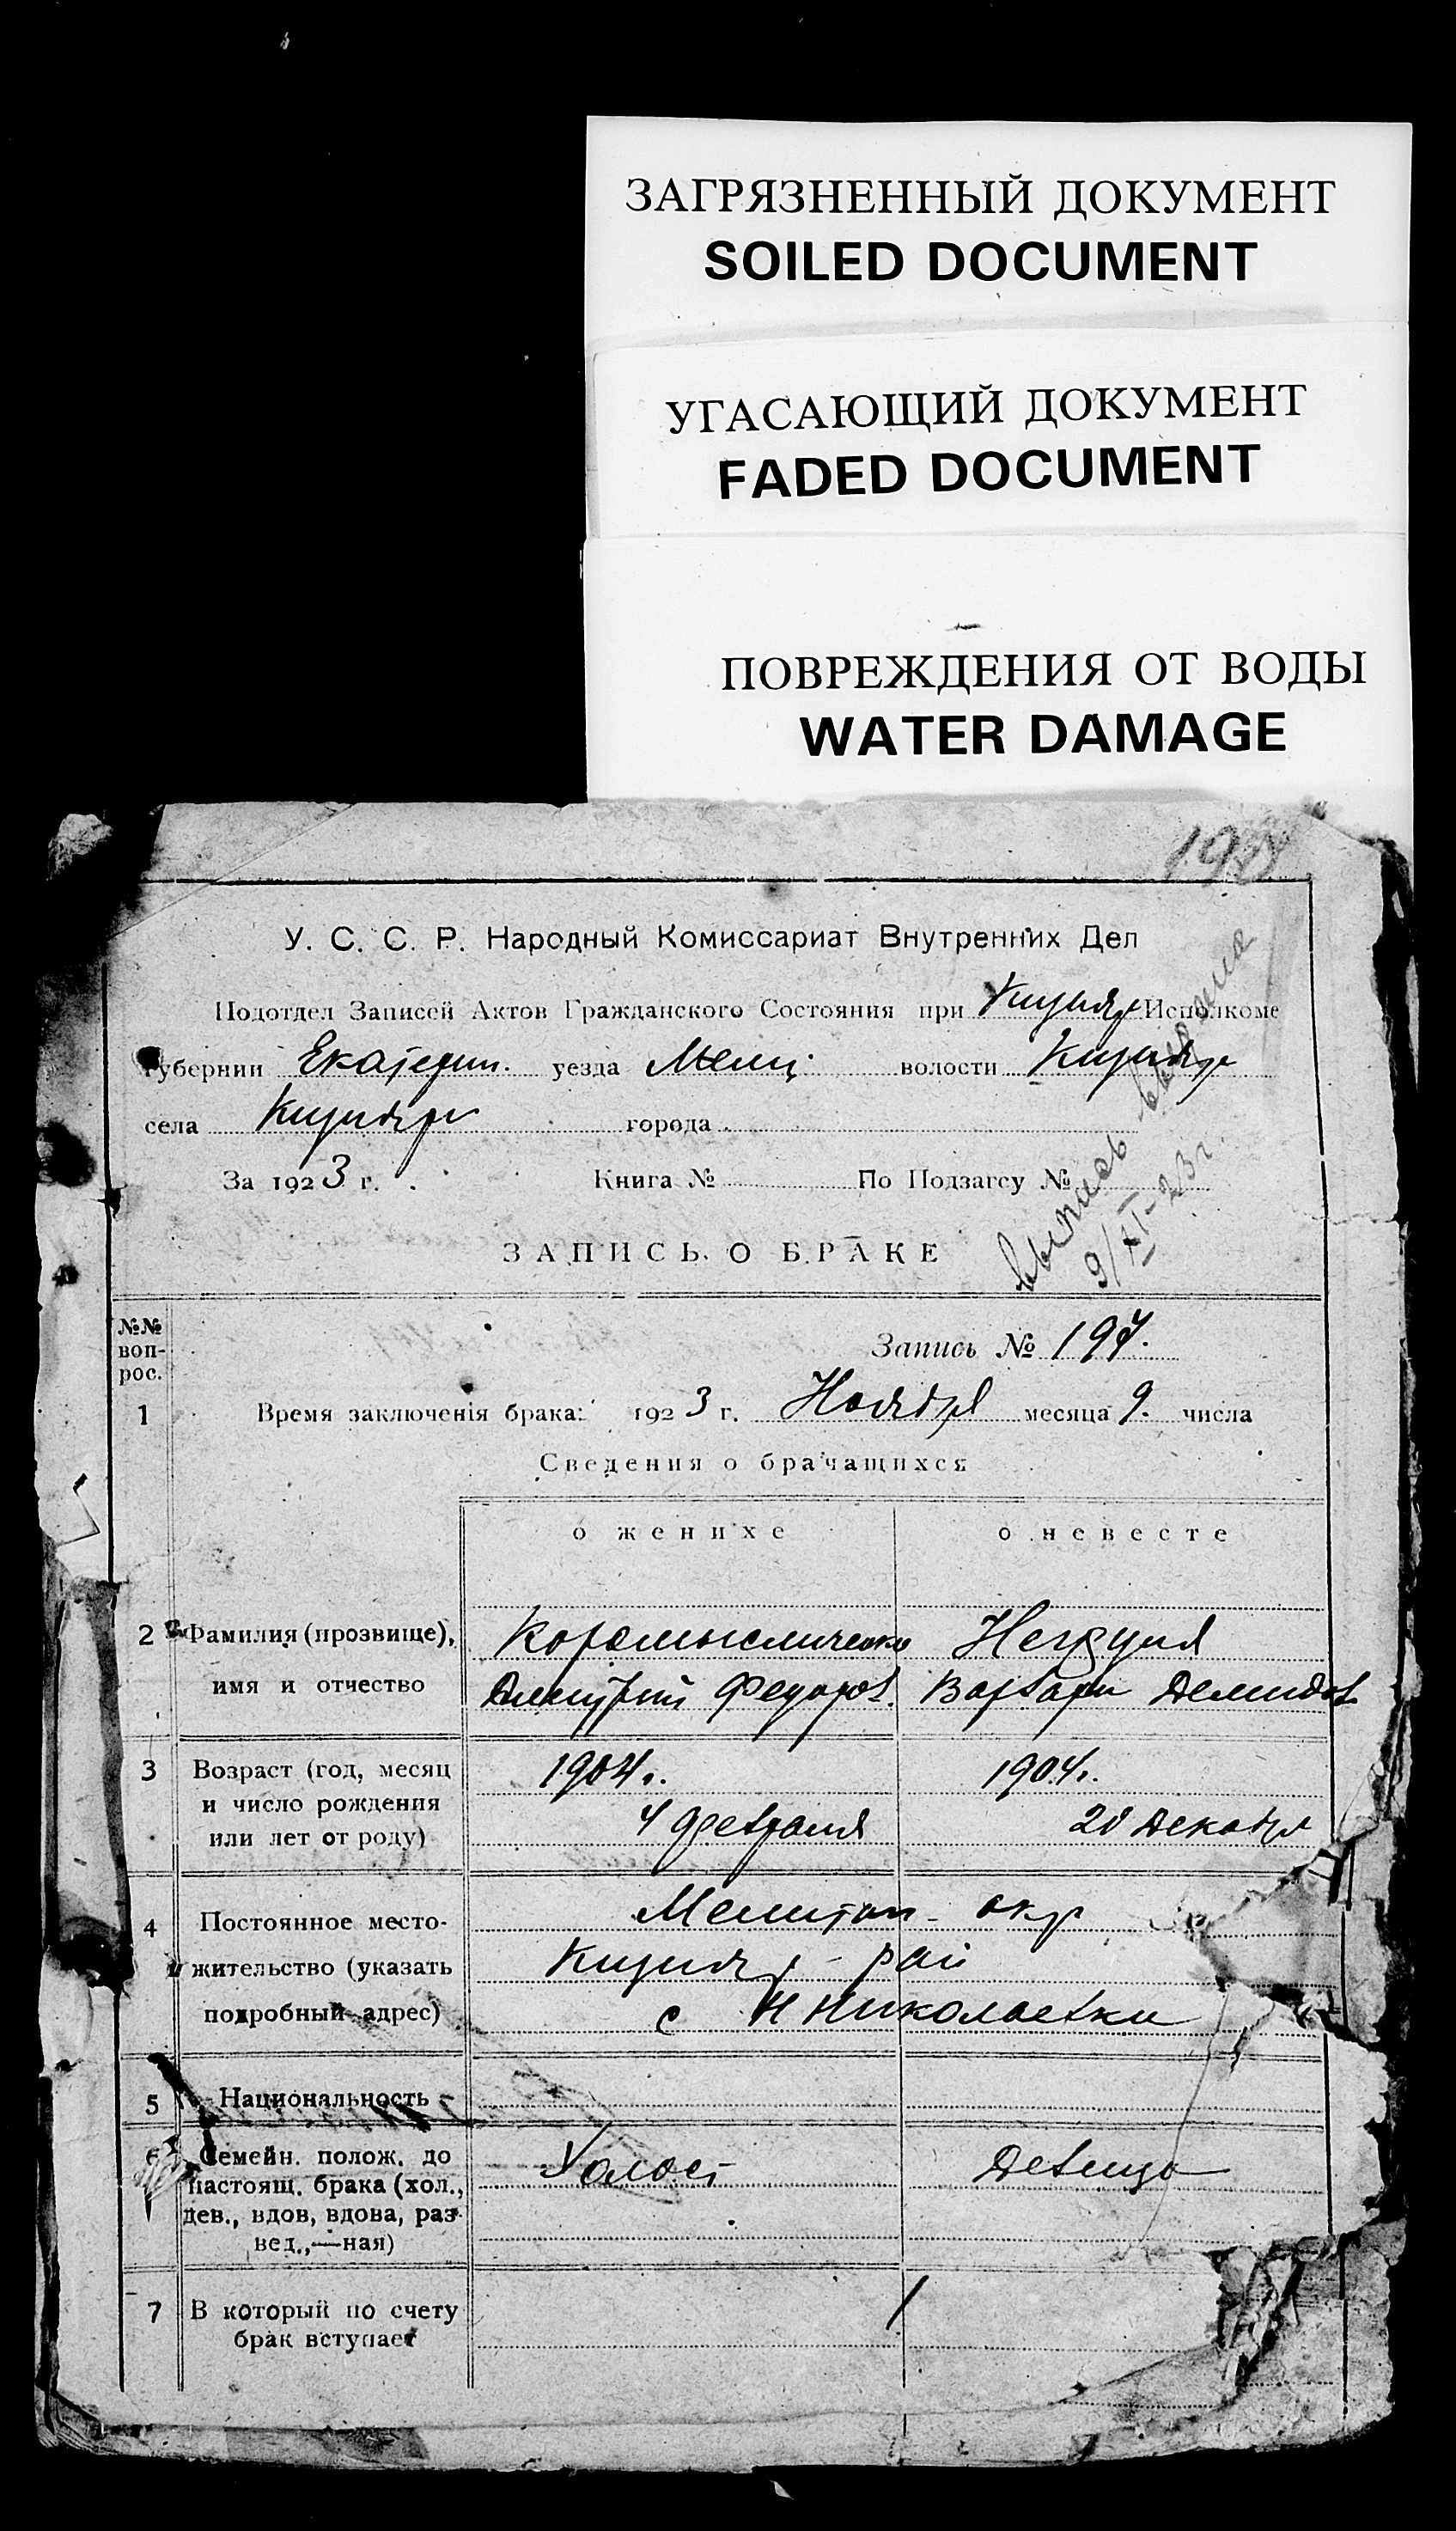 ЗАГРЯЗНЕННЫЙ ДОКУМЕНТ
SOILED DOCUMENT
УГАСАЮЩИЙ ДОКУМЕНТ
FADED DOCUMENT
ПОВРЕЖДЕНИЯ ОТ ВОДЫ
WATER DAMAGE
У. С. С. Р. Народный Комиссариат Внутренних Дел
Подотдел Записей Актов Гражданского Состояния при Кизияр Исполкоме
губернии Екатерин. уезда Мелит волости Кизияр
села Кизияр города
За 1923 г. Книга № По Подзагсу №
выпись выдана
9/XI-23 г.
ЗАПИСЬ О БРАКЕ
№№ вопрос.
Запись № 197.
1 Время заключенія брака: 1923 г. Ноября месяца 9. числа
Сведения о брачащихся
о женихе о невесте
2 Фамилия (прозвище), Коромысличенко
имя и отчество Дмитрий Федоров. Варвара Демидов
3 Возраст (год, месяц 1904 г. 1904 г.
и число рождения 4 февраля 20 Декабр
или лет от роду)
4 Постоянное место- Мелитоп- окр
жительство (указать Кизияр - рай
подробный адрес) с Н Николаевки
5 Национальность
6 Семейн. полож. до Холост Девица
настоящ. брака (хол.,
дев., вдов, вдова, раз-
вед.,—ная)
7 В который по счету 1
брак вступает